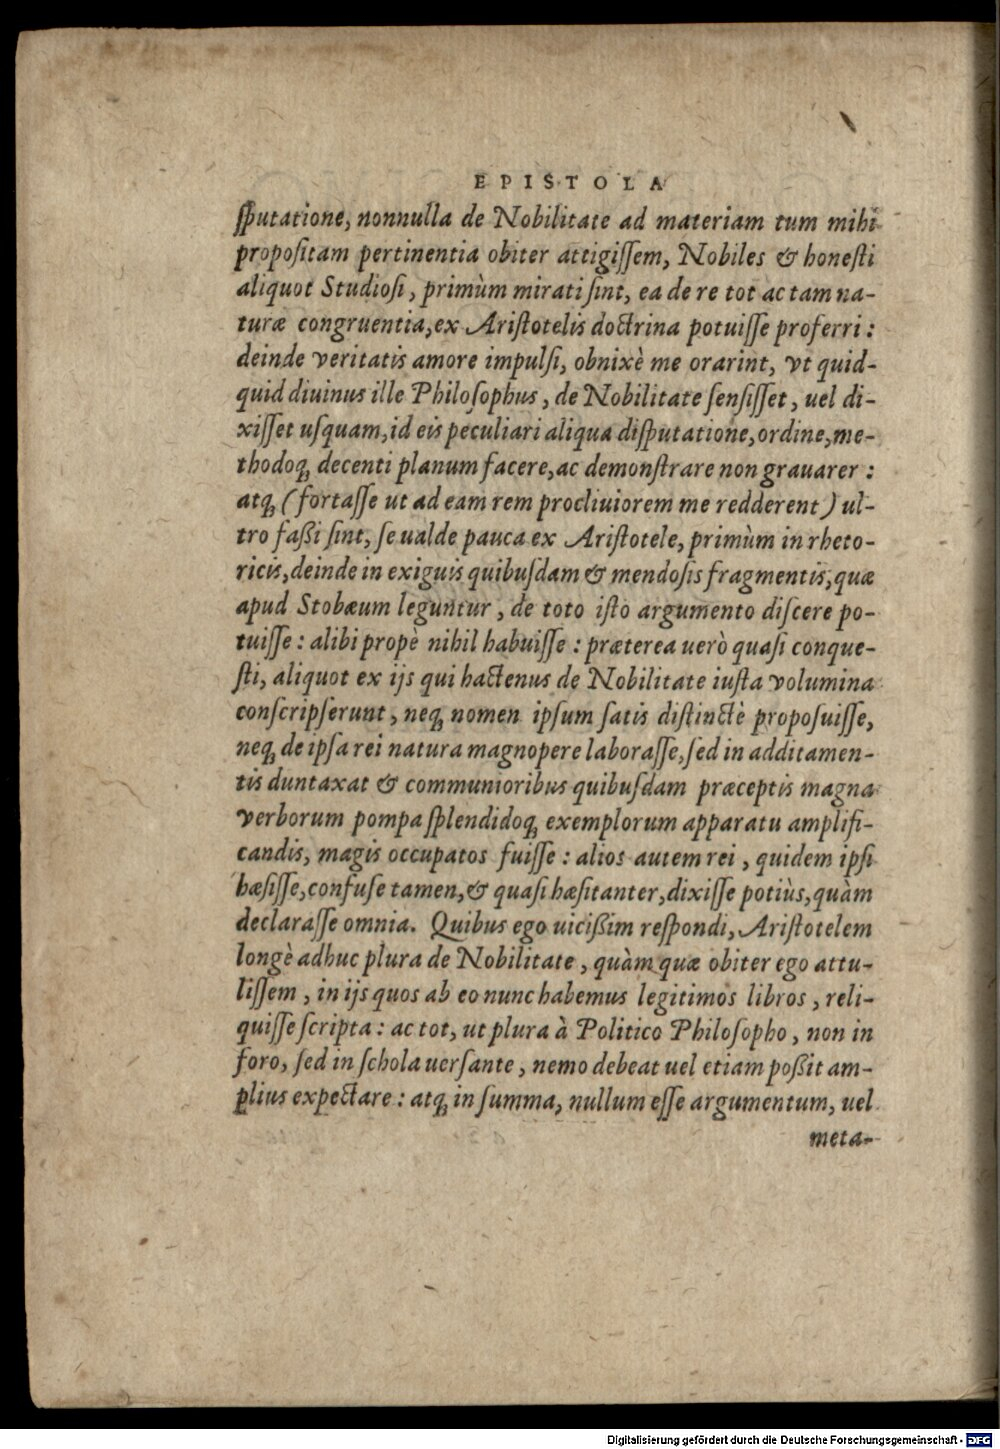 EPISTOLA
ſputatione, nonnulla de Nobilitate ad materiam tum mihi
propoſitam pertinentia obiter attigiſſem, Nobiles & honeſti
aliquot Studioſi, primùm mirati ſint, ea de re tot ac tam na-
turæ congruentia, ex Ariſtotelis doctrina potuiſſe proferri:
deinde veritatis amore impulſi, obnixè me orarint, vt quid-
quid diuinus ille Philoſophus, de Nobilitate ſenſiſſet, uel di-
xiſſet uſquam, id eis peculiari aliqua diſputatione, ordine, me-
thodoq; decenti planum facere, ac demonſtrare non grauarer:
atq; (fortaſſe ut ad eam rem procliuiorem me redderent) ul-
tro faßi ſint, ſe ualde pauca ex Ariſtotele, primùm in rheto-
ricis, deinde in exiguis quibuſdam & mendoſis fragmentis, quæ
apud Stobæum leguntur, de toto iſto argumento diſcere po-
tuiſſe: alibi propè nihil habuiſſe: præterea uerò quaſi conque-
ſti, aliquot ex ijs qui hactenus de Nobilitate iuſta volumina
conſcripſerunt, neq; nomen ipſum ſatis diſtinctè propoſuiſſe,
neq; de ipſa rei natura magnopere laboraſſe, ſed in additamen-
tis duntaxat & communioribus quibuſdam præceptis magna
verborum pompa ſplendidoq; exemplorum apparatu amplifi-
candis, magis occupatos fuiſſe: alios autem rei, quidem ipſi
hæſiſſe, confuſe tamen, & quaſi hæſitanter, dixiſſe potiùs, quàm
declaraſſe omnia. Quibus ego uicißim reſpondi, Ariſtotelem
longè adhuc plura de Nobilitate, quàm quæ obiter ego attu-
liſſem, in ijs quos ab eo nunc habemus legitimos libros, reli-
quiſſe ſcripta: ac tot, ut plura à Politico Philoſopho, non in
foro, ſed in ſchola uerſante, nemo debeat uel etiam poßit am-
plius expectare: atq; in ſumma, nullum eſſe argumentum, uel
meta-
Digitalisierung gefördert durch die Deutsche Forschungsgemeinschaft - DFG